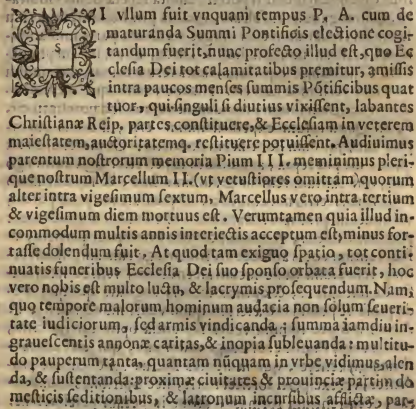 SI vllum fuit vnquam tempus P. A. cum de
maturanda Summi Pontificis electione cogi-
tandum fuerit, nunc profecto illud est, quo Ec
clesia Dei tot calamitatibus premitur, amissis
intra paucos menses summis Põtificibus quat
tuor, qui singuli si diutius vixissent, labantes
Christianæ Reip. partes constituere, & Ecclesiam in veterem
maiestatem, auctoritatemq. restituere potuissent. Audiuimus
parentum nostrorum memoria Pium III. meminimus pleri-
que nostrum Marcellum II. (vt vetustiores omittãm) quorum
alter intra vigesimum sextum, Marcellus vero intra tertium
& vigesimum diem mortuus est. Verumtamen quia illud in-
commodum multis annis interiectis acceptum est, minus for-
tasse dolendum fuit. At quod tam exiguo spatio, tot conti-
nuatis funeribus Ecclesia Dei suo sponso orbata fuerit, hoc
vero nobis est multo luctu, & lacrymis prosequendum. Nam,
quo tempore malorum hominum audacia non solum seueri-
tate iudiciorum, sed armis vindicanda; summa iamdiu in-
grauescentis annonæ caritas, & inopia subleuanda: multitu-
do pauperum tanta, quantam nũquam in vrbe vidimus, alen
da, & sustentanda: proximæ ciuitates & prouinciæ partim do
mesticis seditionibus, & latronum incursibus afflictæ, par-